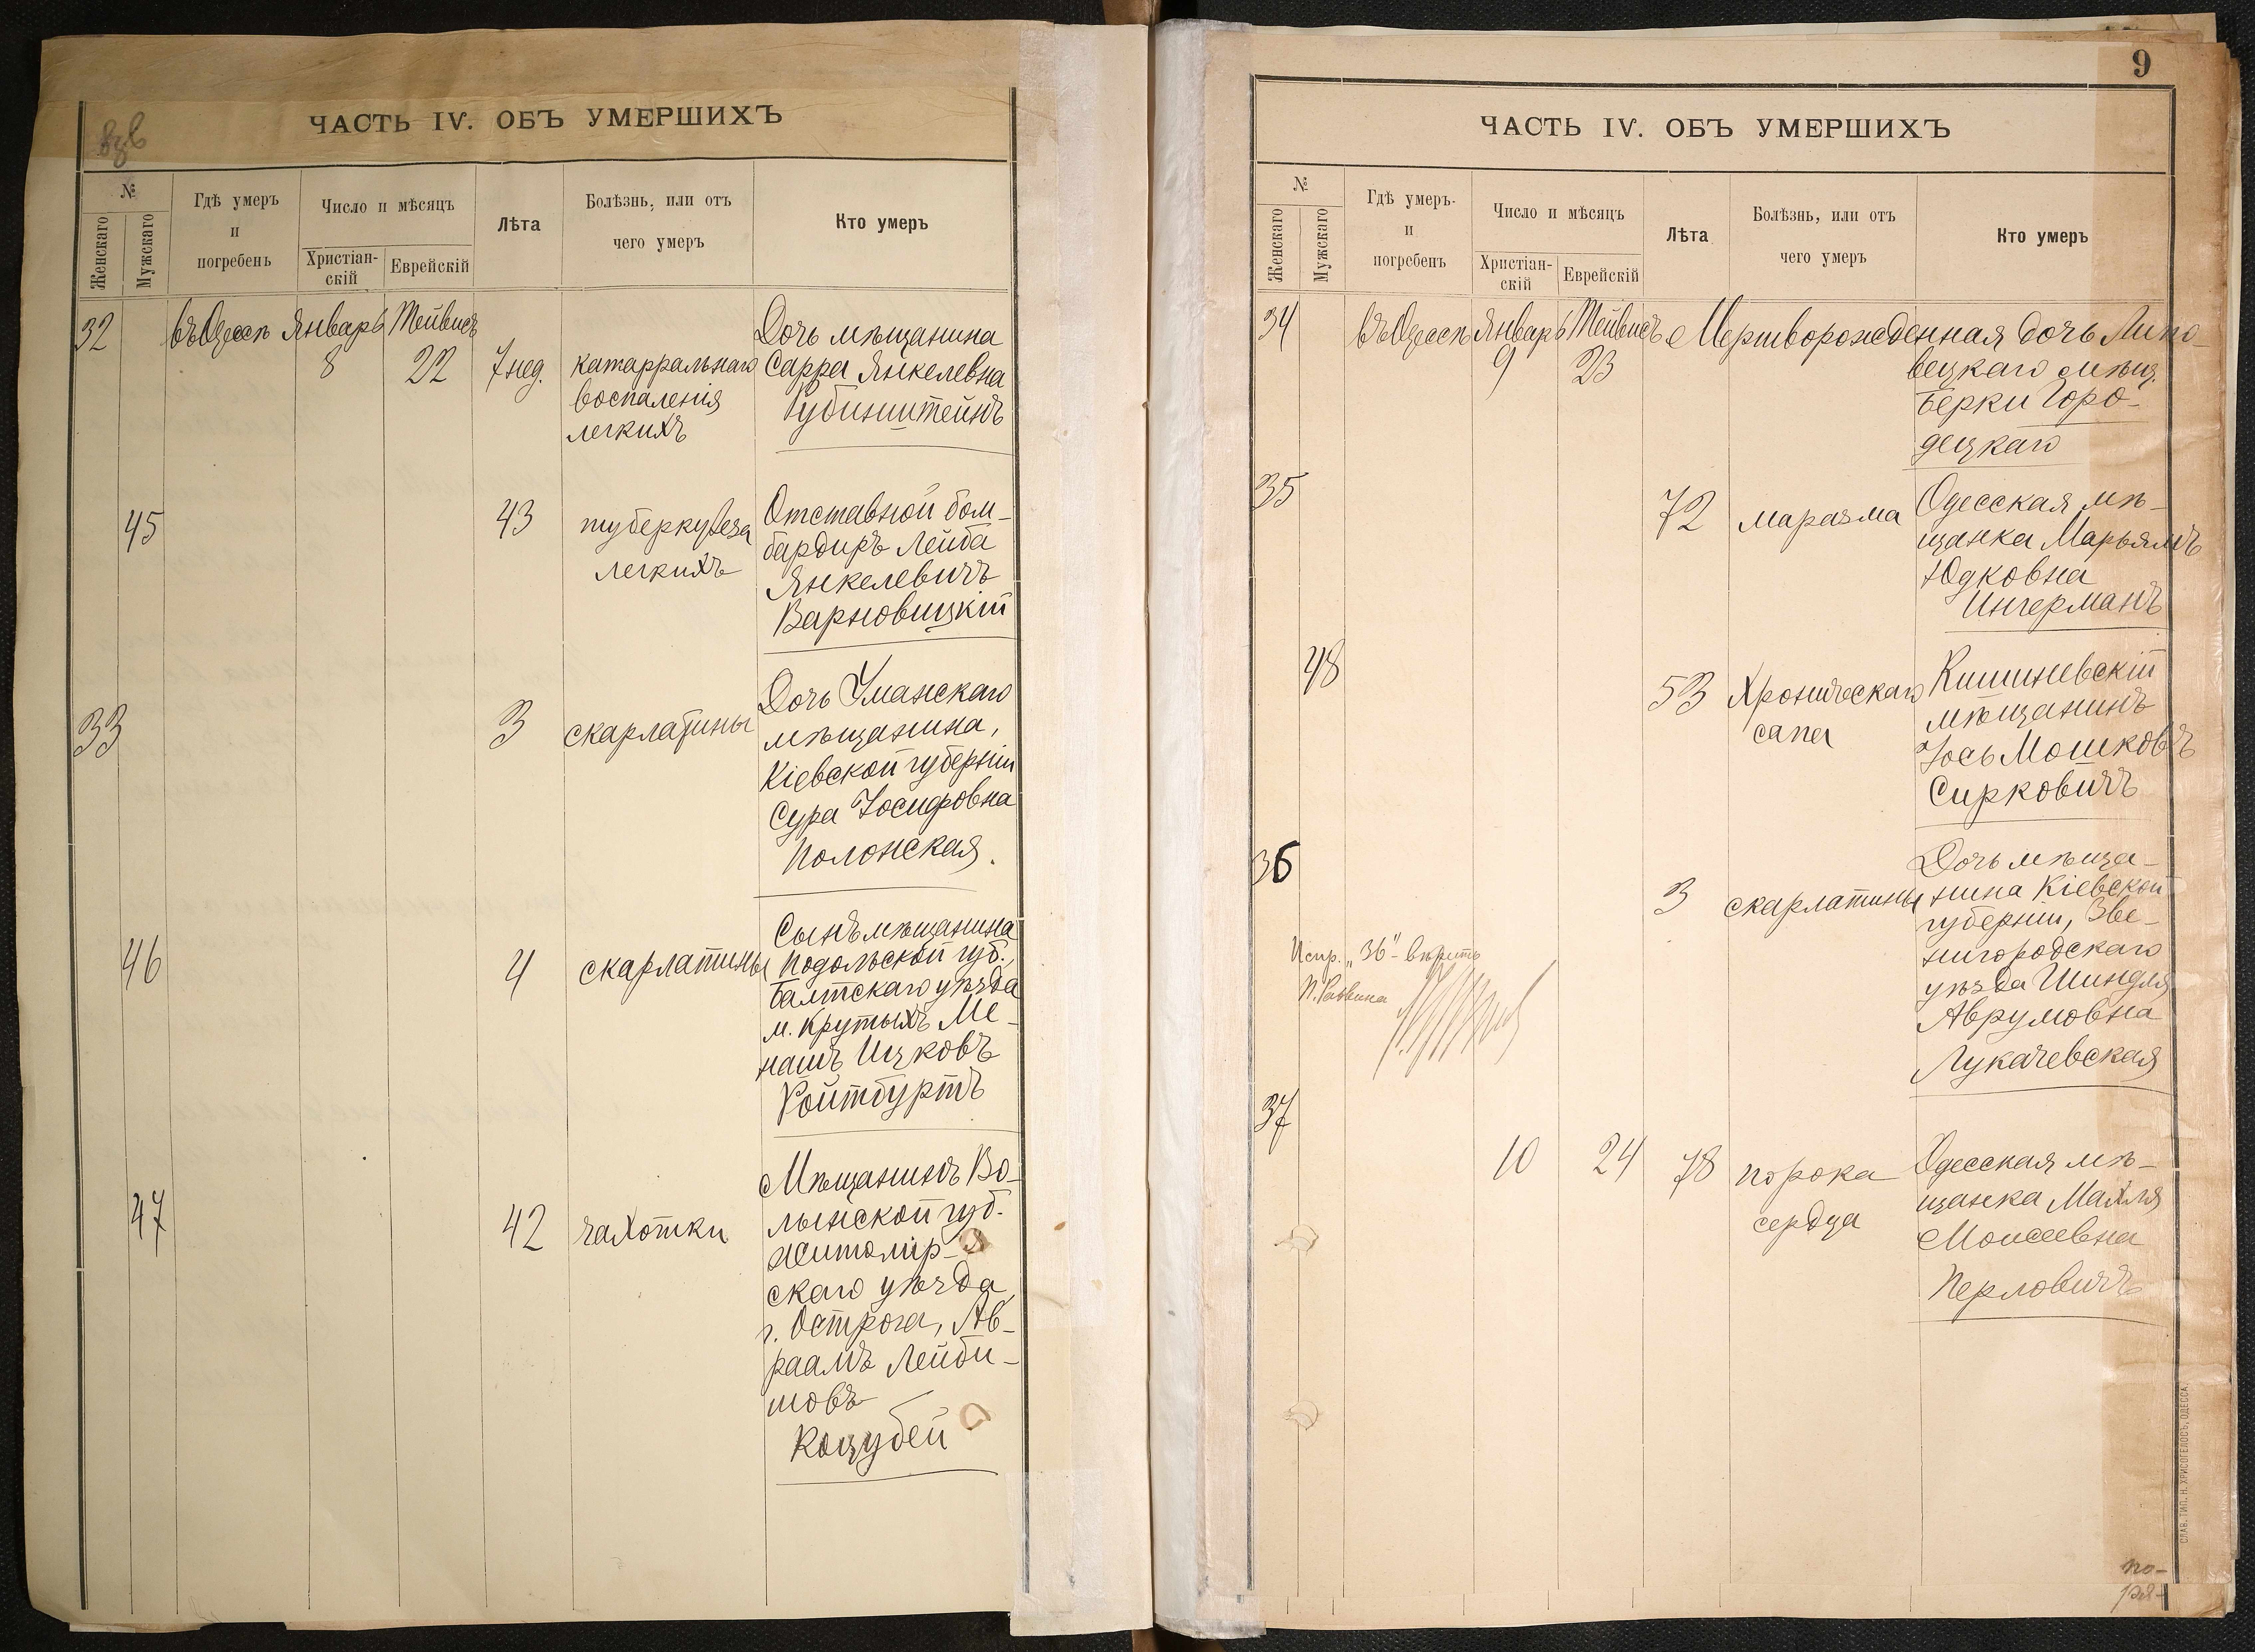 ЧАСТЬ IV. ОБЪ УМЕРШИХЪ
№
Женскаго
Мужскаго
Гдѣ умеръ
и
погребенъ
Число и мѣсяцъ
Христіан-
скій
Еврейскій
Лѣта
Болѣзнь, или отъ
чего умеръ
Кто умеръ
32 въ Одессѣ Январь Тейвисъ
8 22 7 нед.
катарральнаго
воспаленія
легкихъ
Дочь мѣщанина
Сарра Янкелевна
Рубинштейнъ
45
43
туберкулеза
легкихъ
Отставной бом-
бардиръ Лейба
Янкелевичъ
Варновицкій
33
3
скарлатины
Дочь Уманскаго
мѣщанина,
Кіевской губерніи
Сура Іосифовна
Полонская.
46
4
скарлатины
Сынъ мѣщанина
Подольской губ.,
Балтскаго уѣзда
м. Крутыхъ Ме-
нашъ Ицковъ
Ройтбуртъ
47
42
чахотки
Мѣщанинъ Во-
лынской губ.
Житомір-
скаго уѣзда,
г. Острога, Ав-
раамъ Лейби-
шовъ
Коцубей
9
ЧАСТЬ IV. ОБЪ УМЕРШИХЪ
№
Женскаго
Мужскаго
Гдѣ умеръ
и
погребенъ
Число и мѣсяцъ
Христіан-
скій
Еврейскій
Лѣта
Болѣзнь, или отъ
чего умеръ
Кто умеръ
34 въ Одессѣ Январь Тейвисъ Мертворожденная дочь Липо-
9 23
вецкаго мѣщ.
Берки Горо-
децкаго
35
72
маразма
Одесская мѣ-
щанка Марьямъ
Юдковна
Ингерманъ
48
53
Хроническаго
сапа
Кишиневскій
мѣщанинъ
Іось Мошковъ
Сирковичъ
36
3
скарлатины
Дочь мѣща-
нина Кіевской
губерніи, Зве-
нигородскаго
уѣзда Шиндля
Аврумовна
Лукачевская
Испр. „36" - вѣрить
37
10 24 78
порока
сердца
Одесская мѣ-
щанка Махля
Моисеевна
Перловичъ
СЛАВ. ТИП. Н. ХРИСОГЕЛОСЪ, ОДЕССА.